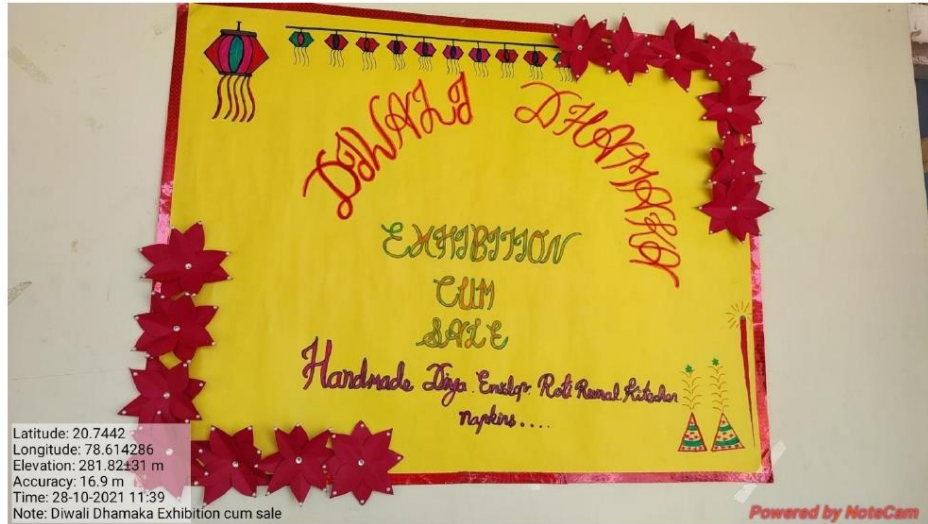 DIWALI DHAMAKA
EXHIBITION
CUM
SALE
Handmade Diya. Envlop. Roti Rumal Kitechen
Napkins....
Latitude: 20.7442
Longitude: 78.614286
Elevation: 281.82±31 m
Accuracy: 16.9 m
Time: 28-10-2021 11:39
Note: Diwali Dhamaka Exhibition cum sale
Powered by NoteCam